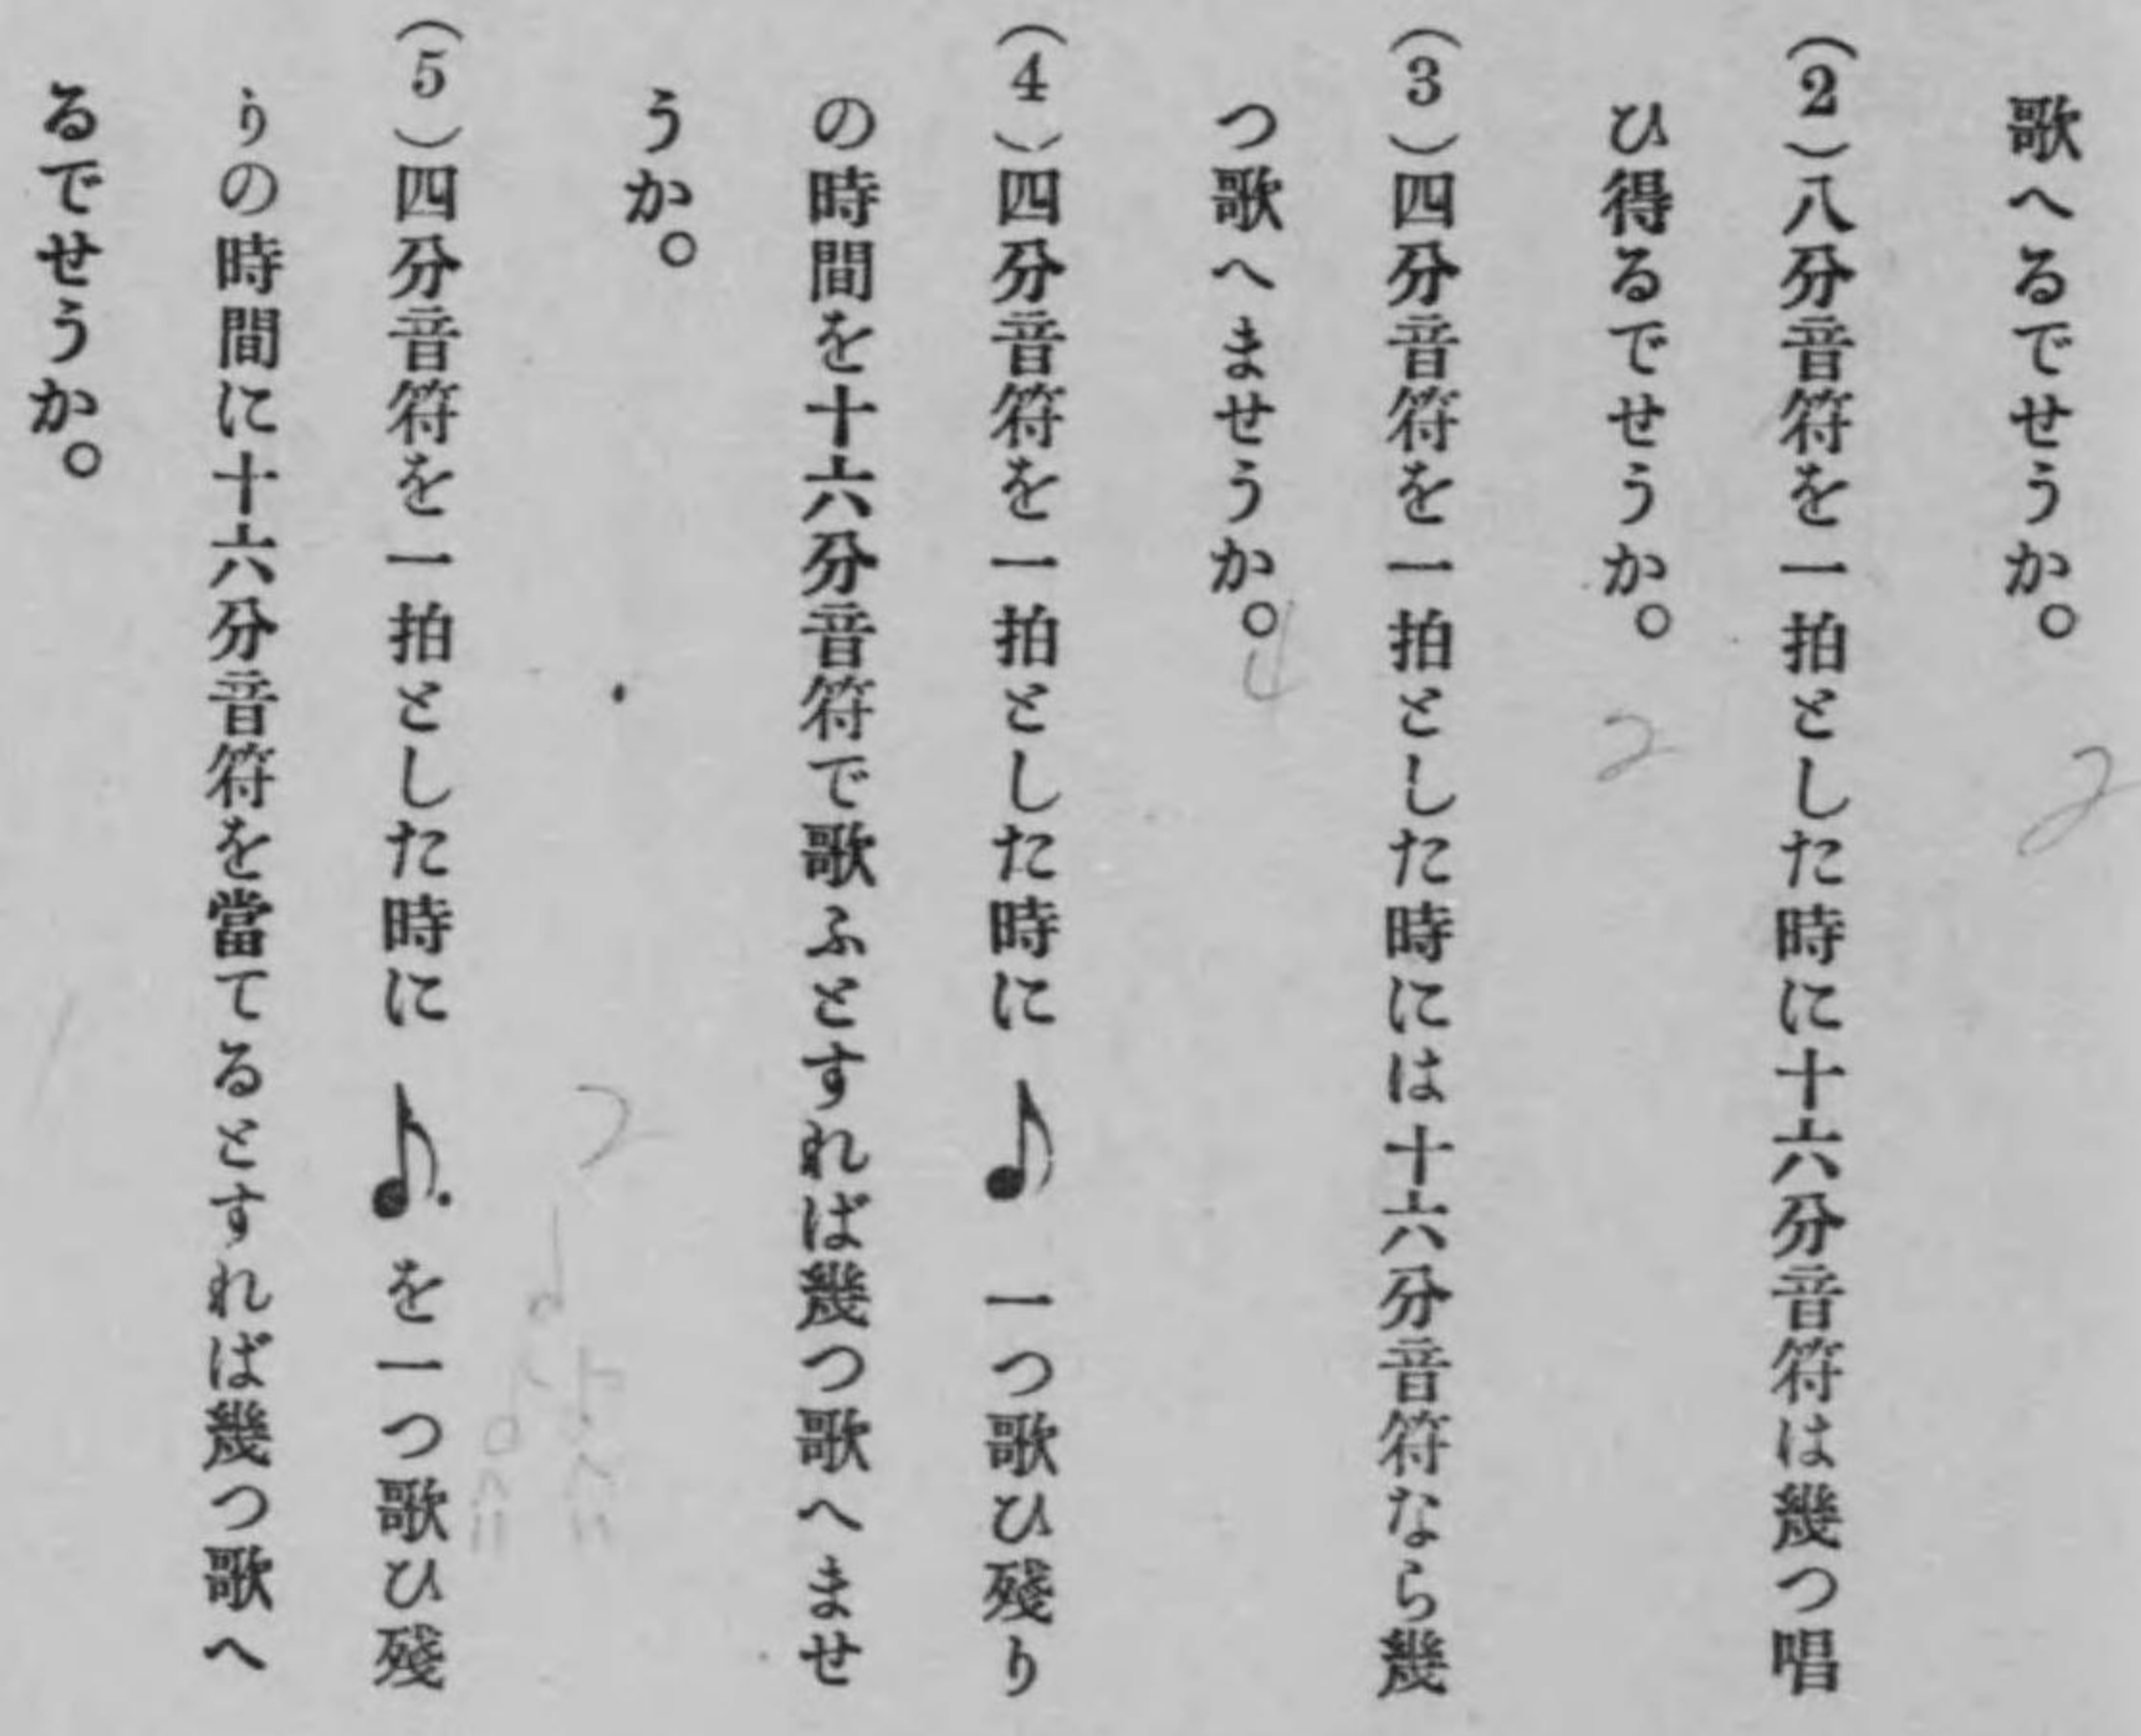 歌へるでせうか。
2
(2)八分音符を一拍とした時に十六分音符は幾つ唱
ひ得るでせうか。
2
(3)四分音符を一拍とした時には十六分音符なら幾
つ歌へませうか。
4
(4)四分音符を一拍とした時に♪一つ歌ひ殘り
の時間を十六分音符で歌ふとすれば幾つ歌へませ
うか。
2
(5)四分音符を一拍とした時に♪.を一つ歌ひ殘
りの時間に十六分音符を當てるとすれば幾つ歌へ
るでせうか。